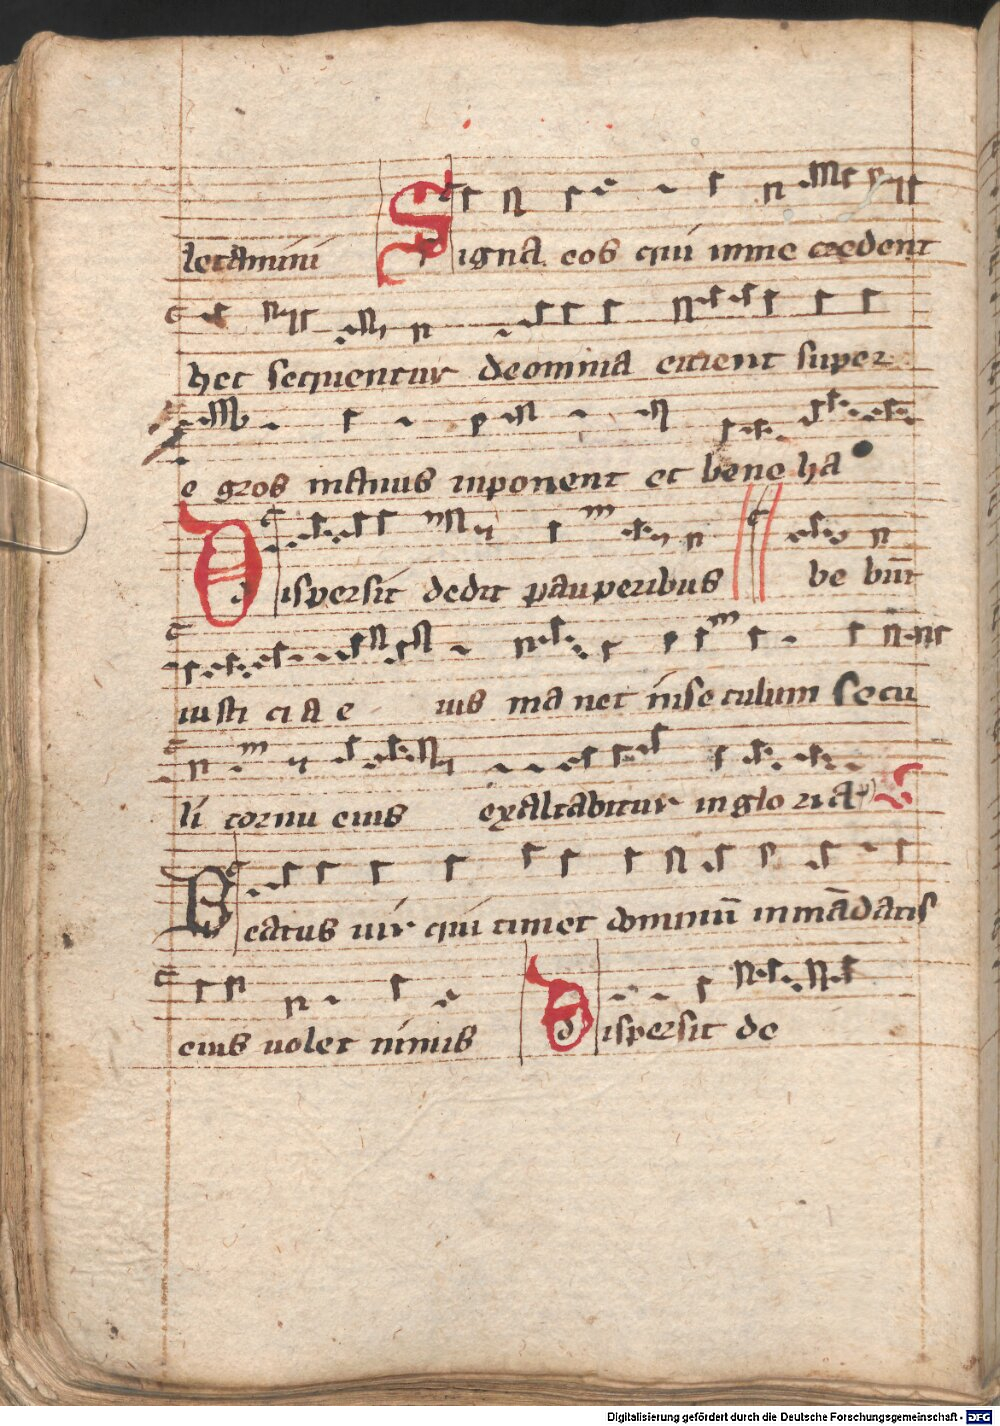 letamini Signa eos qui inme credent
hec sequentur deomnia eicient super
e gros manus inponent et bene ha
Dispersit dedit pauperibus be bu̅t
iusti ci a e ius ma net inse culum secu
li cornu eius exaltabitur inglo ria
Beatus uir qui timet dominu̅ inma̅datis
eius uolet nimis Dispersit de
Digitalisierung gefördert durch die Deutsche Forschungsgemeinschaft - DFG